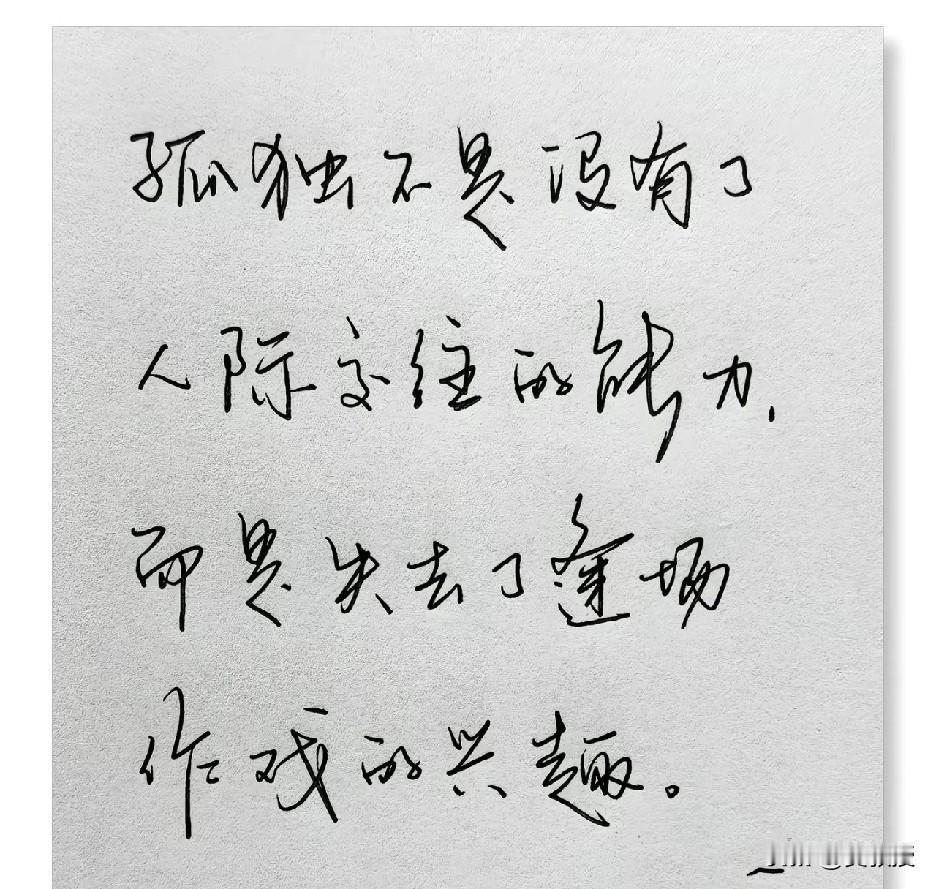 孤独不是没有了
人际交往的能力,
而是失去了逢场
作戏的兴趣。